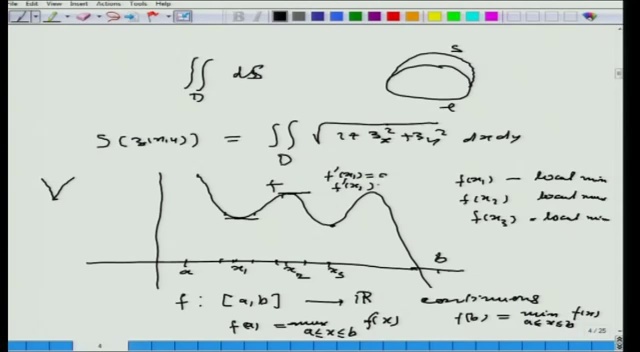 Edit View Insert Actions Tools Help
∬_D dS
S
S(z(x,y)) = ∬_D √(1+z_x²+z_y²) dxdy
f
f'(x₁)=0
f'(x₂)
f(x₁) – local min
f(x₂) local max
f(x₃) – local min
a x₁ x₂ x₃ b
f : [a,b] → ℝ continuous
f(a) = max_{a≤x≤b} f(x) f(b) = min_{a≤x≤b} f(x)
4 / 25
4